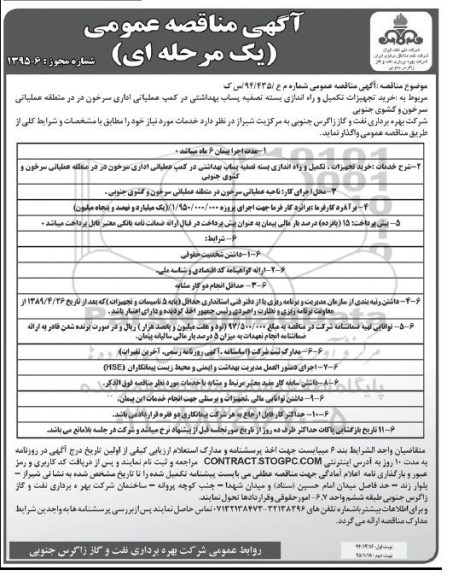 آگهی مناقصه عمومی
(یک مرحله ای)
شماره مجوز: ۱۳۹۵۰۶
شرکت ملی نفت ایران
شرکت نفت مناطق مرکزی ایران
شرکت بهره برداری نفت و گاز
زاگرس جنوبی
موضوع مناقصه :آگهی مناقصه عمومی شماره م ع /۹۴/۴۳۵/س ک
مربوط به :خرید تجهیزات تکمیل و راه اندازی بسته تصفیه پساب بهداشتی در کمپ عملیاتی اداری سرخون در در منطقه عملیاتی
سرخون و گشوی جنوبی
شرکت بهره برداری نفت و گاز زاگرس جنوبی به مرکزیت شیراز در نظر دارد خدمات مورد نیاز خود را مطابق با مشخصات و شرایط کلی از
طریق مناقصه عمومی واگذار نماید.
۱-مدت اجرا پیمان ۶ ماه میباشد
۲-شرح خدمات :خرید تجهیزات ، تکمیل و راه اندازی بسته تصفیه پساب بهداشتی در کمپ عملیاتی اداری سرخون در در منطقه عملیاتی سرخون و
گشوی جنوبی
۳- محل اجرای کار: ناحیه عملیاتی سرخون در منطقه عملیاتی سرخون و گشوی جنوبی .
۴- برآورد کارفرما :برآورد کار فرما جهت اجرای پروژه ۱/۹۵۰/۰۰۰/۰۰۰(یک میلیارد و نهصد و پنجاه میلیون)
۵- پیش پرداخت: ۱۵ (پانزده) درصد بار مالی پیمان به عنوان پیش پرداخت در قبال ارائه ضمانت نامه بانکی معتبر قابل پرداخت میباشد .
۶- شرایط:
۶-۱-داشتن شخصیت حقوقی
۶-۲-ارائه گواهینامه کد اقتصادی و شناسه ملی.
۶-۳- حداقل انجام دو کار مشابه
۶-۴-داشتن رتبه بندی از سازمان مدیریت و برنامه ریزی یا از دفتر فنی استانداری حداقل (پایه ۵ تاسیسات و تجهیزات )که بعد از تاریخ ۱۳۸۹/۴/۲۶ از
معاونت برنامه ریزی و نظارت راهبردی رئیس جمهور اخذ گردیده و دارای اعتبار باشد .
۶-۵- توانایی تهیه ضمانتنامه شرکت در مناقصه به مبلغ ۹۷/۵۰۰/۰۰۰ (نود و هفت میلیون و پانصد هزار) ریال و در صورت برنده شدن قادر به ارائه
ضمانتنامه انجام تعهدات به میزان ۵ درصد بار مالی سالیانه پیمان.
۶-۶- مدارک ثبت شرکت (اساسنامه ، آگهی روزنامه رسمی، آخرین تغییرات)
۶-۷-اجرای دستور العمل مدیریت بهداشت و ایمنی و محیط زیست پیمانکاران (HSE)
۶-۸-داشتن سابقه کار مفید معتبر مرتبط و مشابه با خدمات مورد نظر مناقصه فوق الذکر.
۶-۹- داشتن توانایی مالی ،تجهیزات و پرسنلی جهت انجام خدمات این پیمان.
۶-۱۰- حداکثر کار قابل ارجاع به هر شرکت پیمانکاری دو فقره قرارداد می باشد.
۶-۱۱ تاریخ بازگشایی پاکات حداکثر ظرف ده روز از تاریخ صورتجلسه قبل از پیشنهاد نرخ میباشد و شرکت در جلسه بلامانع می باشد.
متقاضیان واجد الشرایط بند ۶ میبایست جهت اخذ پرسشنامه و مدارک استعلام ارزیابی کیفی از اولین تاریخ درج آگهی در روزنامه
به مدت ۱۰ روز به آدرس اینترنتی CONTRACT.STOGPC.COM مراجعه و ثبت نام نمایند و پس از دریافت کد کاربری و رمز
عبور و بارگذاری نامه اعلام آمادگی جهت مناقصه عظفی می بایست پرسشنامه تکمیل شده را تا تاریخ مشخص شده به نشانی شیراز –
بلوار زند – حد فاصل میدان امام حسین (ستاد) و میدان شهدا – جنب کوچه پروانه – ساختمان شرکت بهره برداری نفت و گاز
زاگرس جنوبی طبقه ششم واحد ۶،۷-امور حقوقی وقراردادها تحویل نمایند.
و برای اطلاعات بیشتر باشماره تلفن های ۳۲۱۳۸۳۹۶-۰۷۱۳۲۱۳۸۴۷۳ تماس حاصل نمایند پس ازبررسی پرسشنامه ها به واجدین شرایط
مدارک مناقصه ارائه می گردد.
روابط عمومی شرکت بهره برداری نفت و گاز زاگرس جنوبی
نوبت اول: ۹۴/۱۲/۱۶
نوبت دوم : ۹۵/۱/۱۸